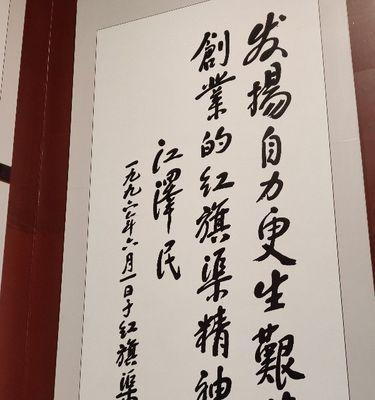 发揚自力更生艱
創業的红旗渠精神
江澤民
一九九六年六月一日于红旗渠